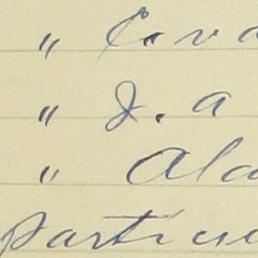 " C. va
" J. a
" Ala
particu